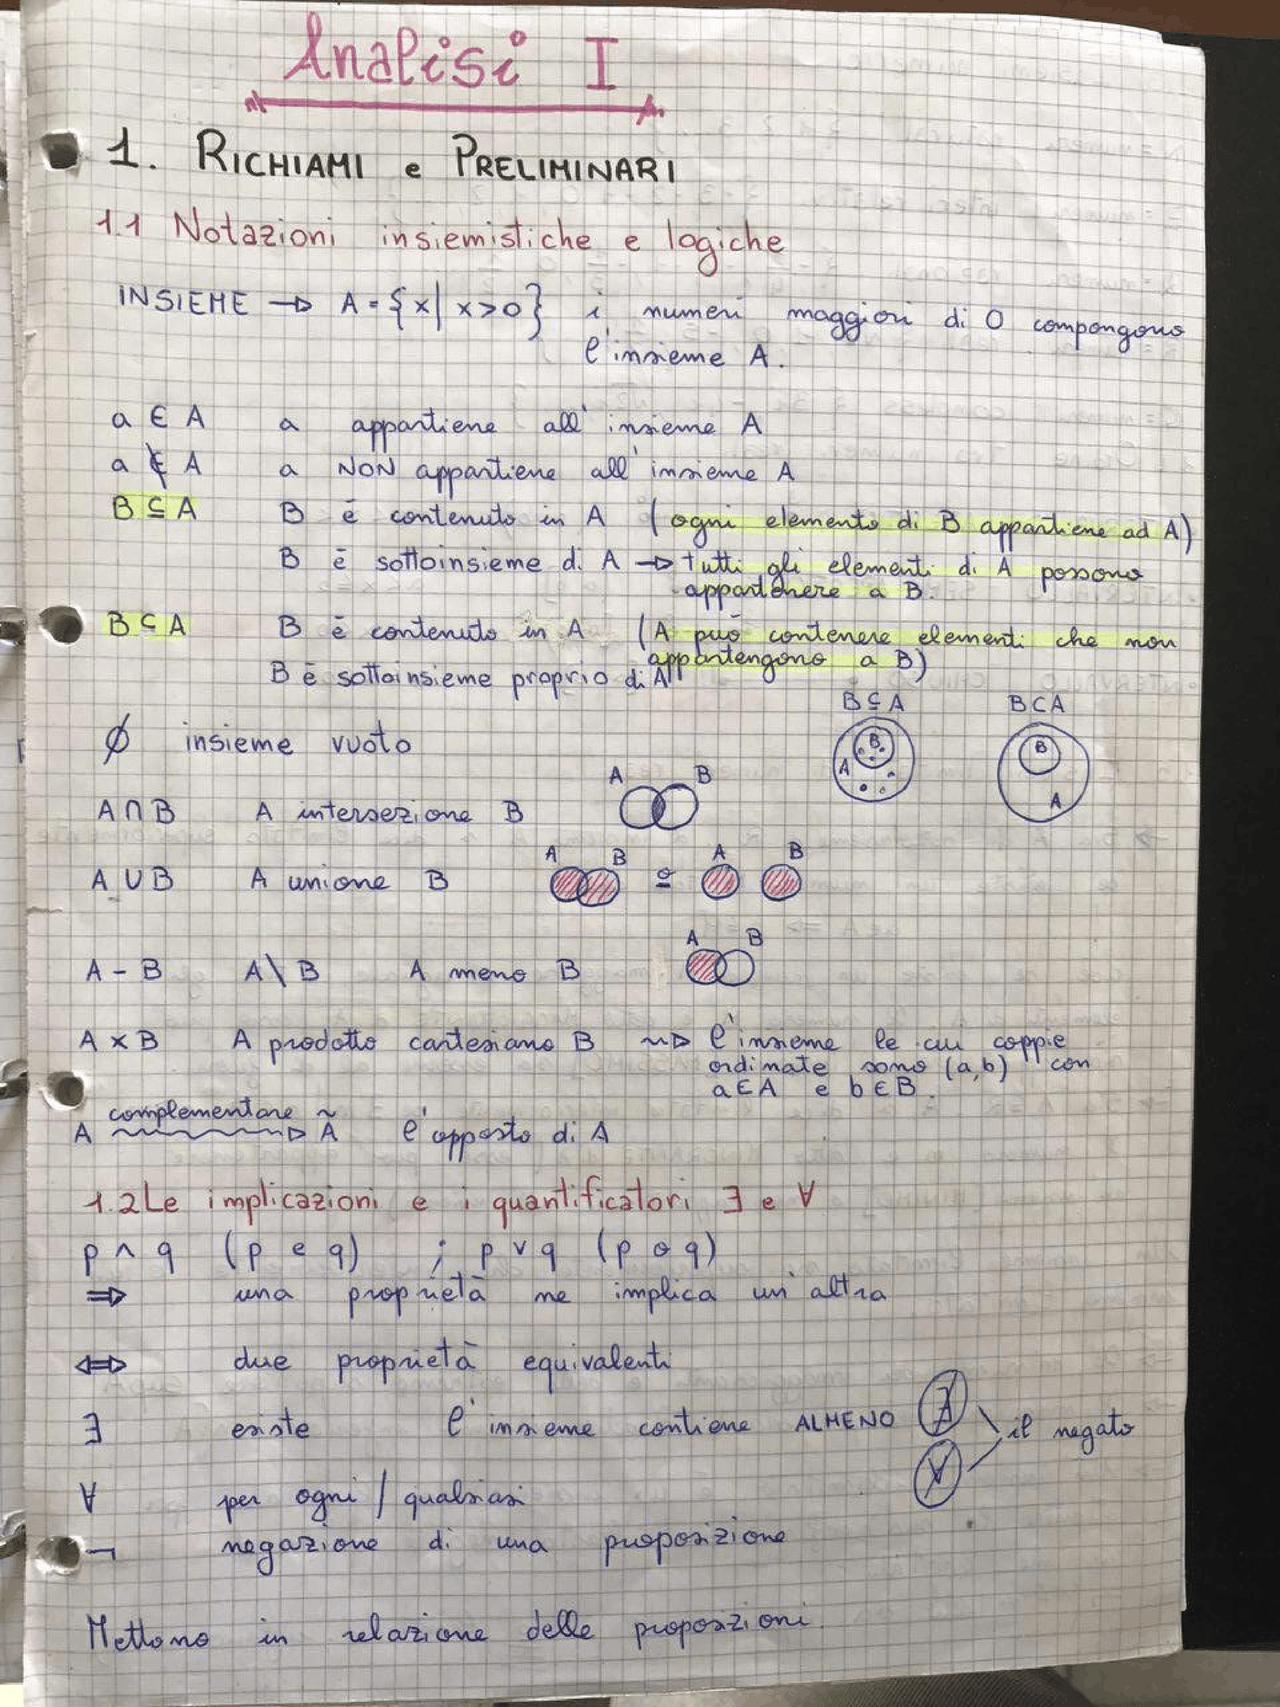 Analisi I
1. RICHIAMI e PRELIMINARI
1.1 Notazioni insiemistiche e logiche
INSIEME → A = {x | x > 0} i numeri maggiori di 0 compongono
l'insieme A.
a ∈ A a appartiene all'insieme A
a ∉ A a NON appartiene all'insieme A
B ⊆ A B è contenuto in A (ogni elemento di B appartiene ad A)
B è sottoinsieme di A → tutti gli elementi di A possono
appartenere a B.
B ⊊ A B è contenuto in A (A può contenere elementi che non
appartengono a B)
B è sottoinsieme proprio di A
B ⊊ A B ⊂ A
B B
A A
∅ insieme vuoto
A B
A ∩ B A intersezione B
A B A B
A ∪ B A unione B o
A B
A - B A \ B A meno B
A × B A prodotto cartesiano B ⇝ l'insieme le cui coppie
ordinate sono (a,b) con
a ∈ A e b ∈ B.
complementare
A ⇝ Ã l'opposto di A
1.2 Le implicazioni e i quantificatori ∃ e ∀
p ∧ q (p e q) ; p ∨ q (p o q)
⇒ una proprietà ne implica un'altra
⇔ due proprietà equivalenti
∃ esiste l'insieme contiene ALMENO ∄
il negato
∀ per ogni / qualsiasi
¬ negazione di una proposizione
Mettono in relazione delle proposizioni.